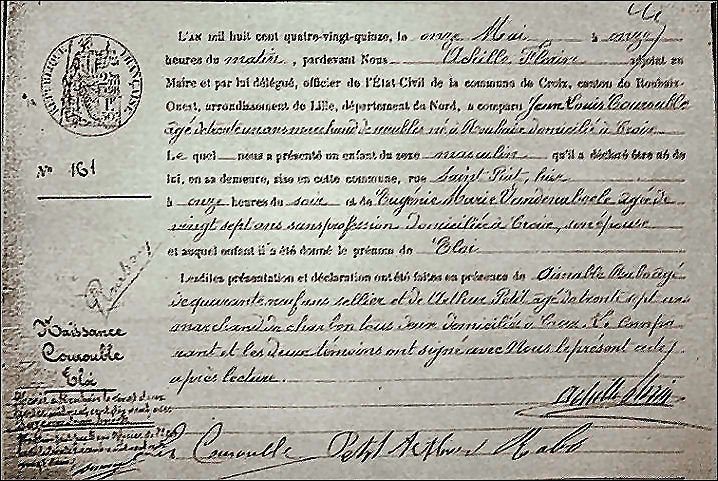 L'AN mil huit cent quatre-vingt-quinze, le onze Mai à onze
heures du matin, pardevant Nous Achille Flérin adjoint au
Maire et par lui délégué, officier de l'État Civil de la commune de Croix, canton de Roubaix-
Ouest, arrondissement de Lille, département du Nord, a comparu Jean Louis Courouble
âgé de trente un ans marchand de meubles né à Roubaix domicilié à Croix
Le quel nous a présenté un enfant du sexe masculin qu'il a déclaré être né de
lui, en sa demeure, sise en cette commune, rue Saint Piat, hier
à onze heures du soir et de Eugénie Marie Vandenabeele agée de
vingt sept ans sans profession domiciliée à Croix, son épouse
et auquel enfant il a été donné le prénom de Eloi
Lesdites présentation et déclaration ont été faites en présence de Aimable Rabo agé
de quarante neuf ans sellier et de Petit agé de trente sept ans
marchand de charbon tous deux domiciliés à Croix. Le compa-
rant et les deux témoins ont signé avec Nous le présent acte
après lecture.
RÉPUBLIQUE FRANÇAISE
No 161
Roubaix
Naissance
Courouble
Eloi
Courouble Petit Rabo